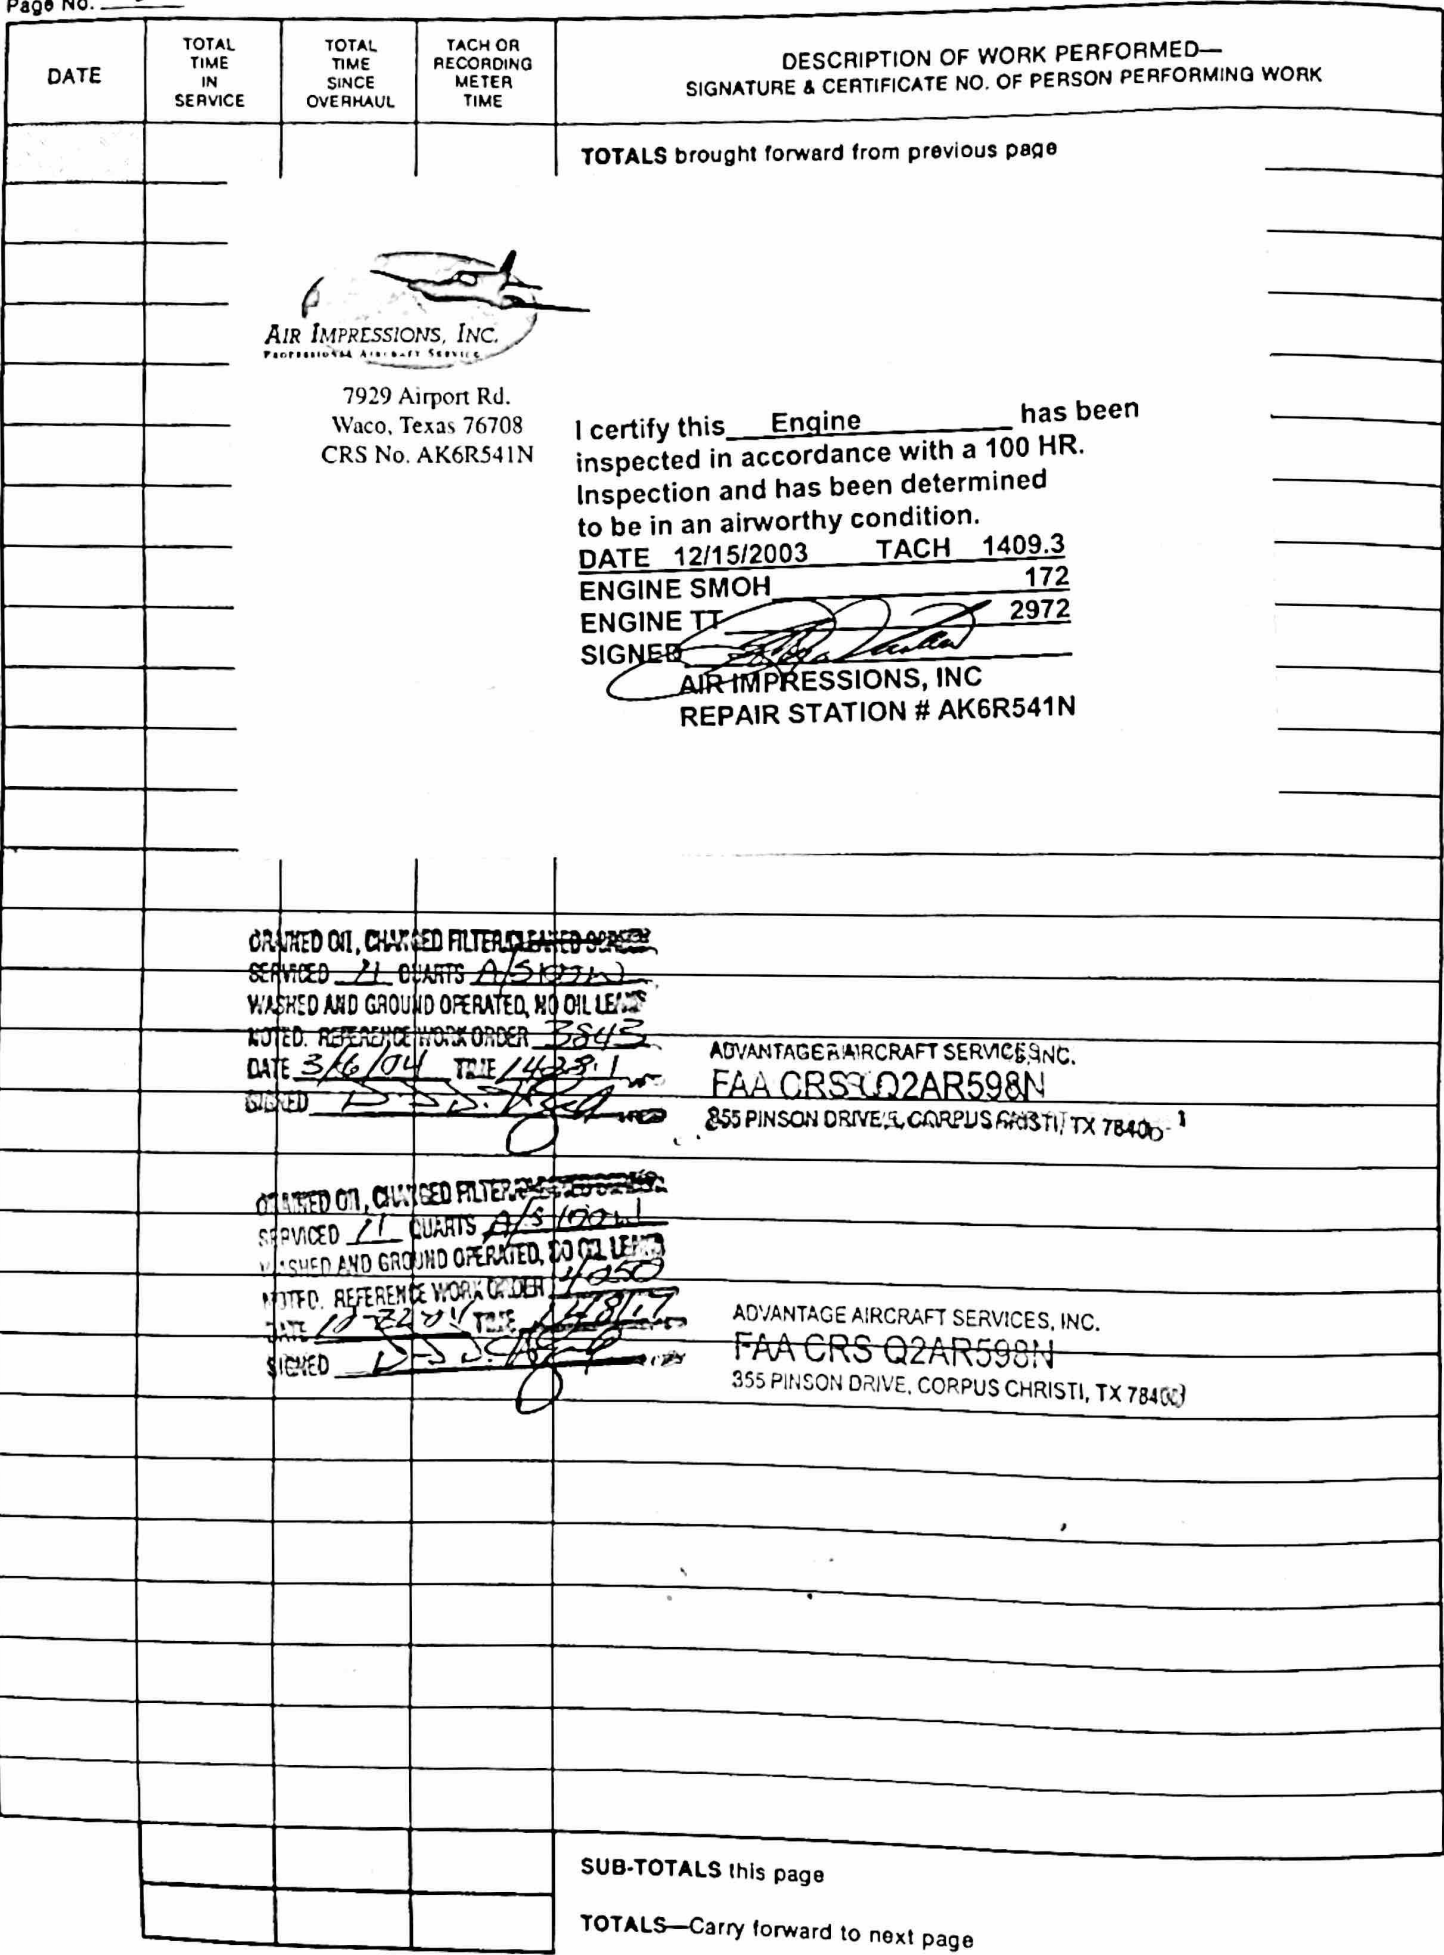 Page No.
DATE
TOTAL TIME IN SERVICE
TOTAL TIME SINCE OVERHAUL
TACH OR RECORDING METER TIME
DESCRIPTION OF WORK PERFORMED—
SIGNATURE & CERTIFICATE NO. OF PERSON PERFORMING WORK
TOTALS brought forward from previous page
AIR IMPRESSIONS, INC.
PROFESSIONAL AIRCRAFT SERVICE
7929 Airport Rd.
Waco, Texas 76708
CRS No. AK6R541N
I certify this Engine has been
inspected in accordance with a 100 HR.
Inspection and has been determined
to be in an airworthy condition.
DATE 12/15/2003 TACH 1409.3
ENGINE SMOH 172
ENGINE TT 2972
SIGNED
AIR IMPRESSIONS, INC
REPAIR STATION # AK6R541N
DRAINED OIL, CHANGED FILTER, CLEANED SCREEN
SERVICED 11 QUARTS A/S 100W
WASHED AND GROUND OPERATED, NO OIL LEAKS
NOTED. REFERENCE WORK ORDER 3843
DATE 3/6/04 TIME 1428.1
SIGNED
ADVANTAGE AIRCRAFT SERVICES, INC.
FAA CRS Q2AR598N
355 PINSON DRIVE, CORPUS CHRISTI, TX 78406
DRAINED OIL, CHANGED FILTER,
SERVICED 11 QUARTS A/S 100W
WASHED AND GROUND OPERATED, NO OIL LEAKS
NOTED. REFERENCE WORK ORDER 4250
DATE TIME
SIGNED
ADVANTAGE AIRCRAFT SERVICES, INC.
FAA CRS Q2AR598N
355 PINSON DRIVE, CORPUS CHRISTI, TX
SUB-TOTALS this page
TOTALS—Carry forward to next page